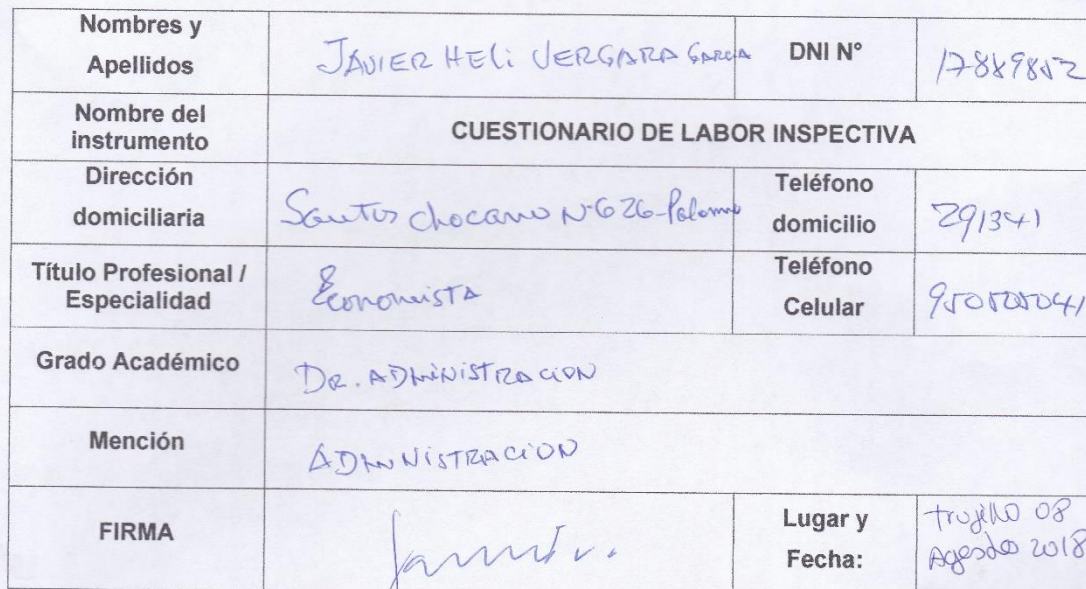 Nombres y
Apellidos
JAVIER HELI VERGARA GARCIA
DNI N°
Nombre del
instrumento
CUESTIONARIO DE LABOR INSPECTIVA
Dirección
domiciliaria
Santos Chocano N° 626-Palermo
Teléfono
domicilio
291341
Título Profesional /
Especialidad
Economista
Teléfono
Celular
Grado Académico
DR. ADMINISTRACION
Mención
ADMINISTRACION
FIRMA
Lugar y
Fecha:
Trujillo 08
Agosto 2018